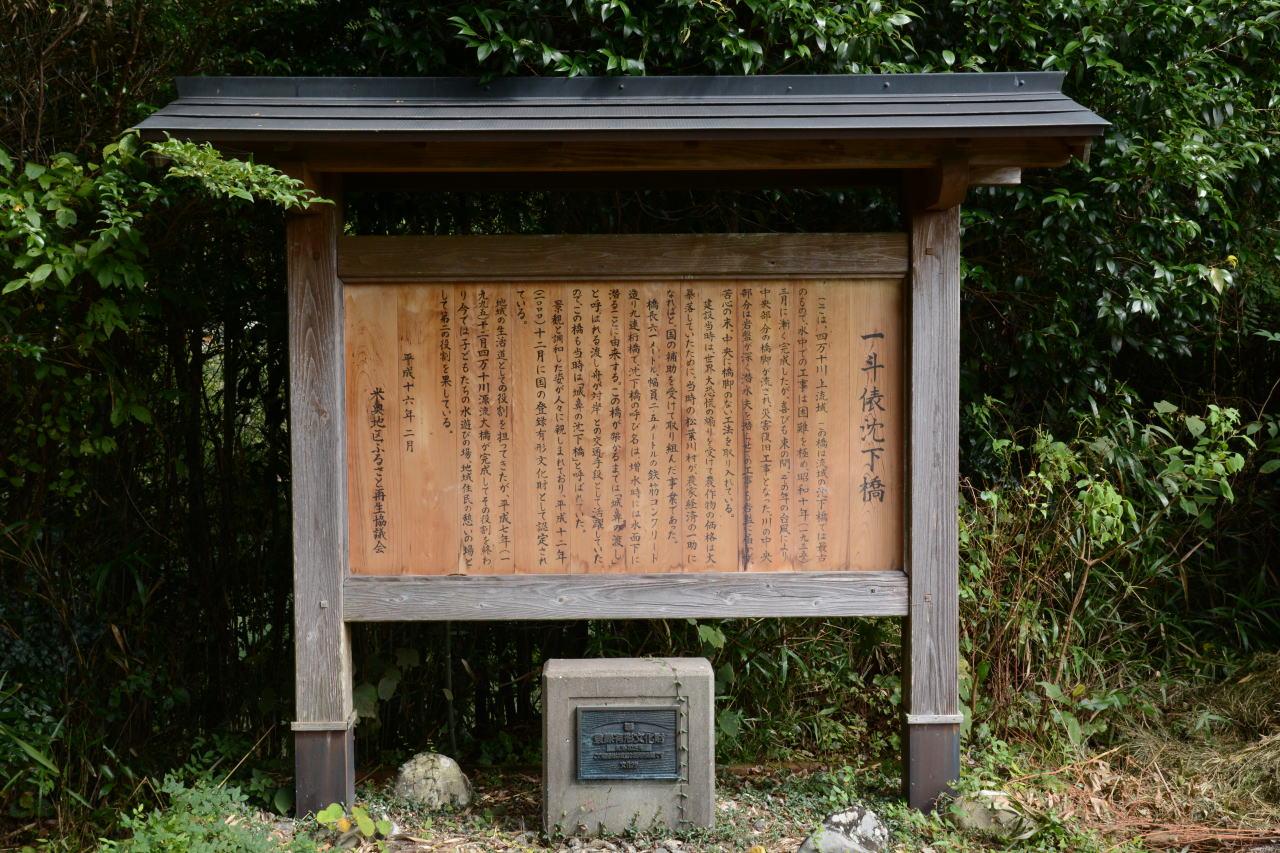 一斗俵沈下橋
ここは、四万十川上流域 この橋は流域の沈下橋では最古
のもので、水中での工事は困難を極め、昭和十年(一九三五)
三月に漸く完成したが、喜びも束の間、その年の台風により
中央部分の橋脚が流され災害復旧工事となった。川の中央
部分は岩盤が深く潜水夫を
苦心の末、中央に橋脚のない工法を取り入れている。
建設当時は世界大恐慌の煽りを受けて農作物の価格は大
暴落していたために、当時の松葉川村が、農家経済の一助に
なればと、国の補助を受けて取り組んだ事業であった。
橋長六一メートル、幅員二・五メートルの鉄筋コンクリート
造り九連桁橋で沈下橋の呼び名は、増水時には水面下に
潜ることに由来する。この橋が架かるまでは「城鼻の渡し」
と呼ばれる渡し舟が対岸との交通手段として活躍していた
ので、この橋も当時は「城鼻の沈下橋」と呼ばれていた。
景観と調和した姿が人々に親しまれており、平成十二年
(二〇〇〇)十二月に国の登録有形文化財として認定され
ている。
地域の生活道としての役割を担ってきたが、平成七年(一
九九五)十二月四万十川源流大橋が完成してその役割を終わ
り今では子どもたちの水遊びの場、地域住民の憩いの場と
して第二の役割を果している。
平成十六年二月
米奥地区ふるさと再生協議会
登録有形文化財
文化庁